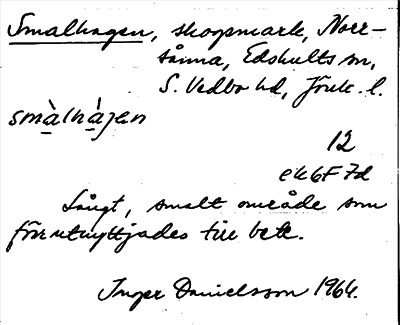 Smalhagen, skogsmark, Norr-
sånna, Edshults sn,
S. Vedbo hd, Jönk. l.
smàlhá̀gen
12
ek 6F 7d
Långt, smalt område som
förr utnyttjades till bete.
Inger Danielsson 1964.